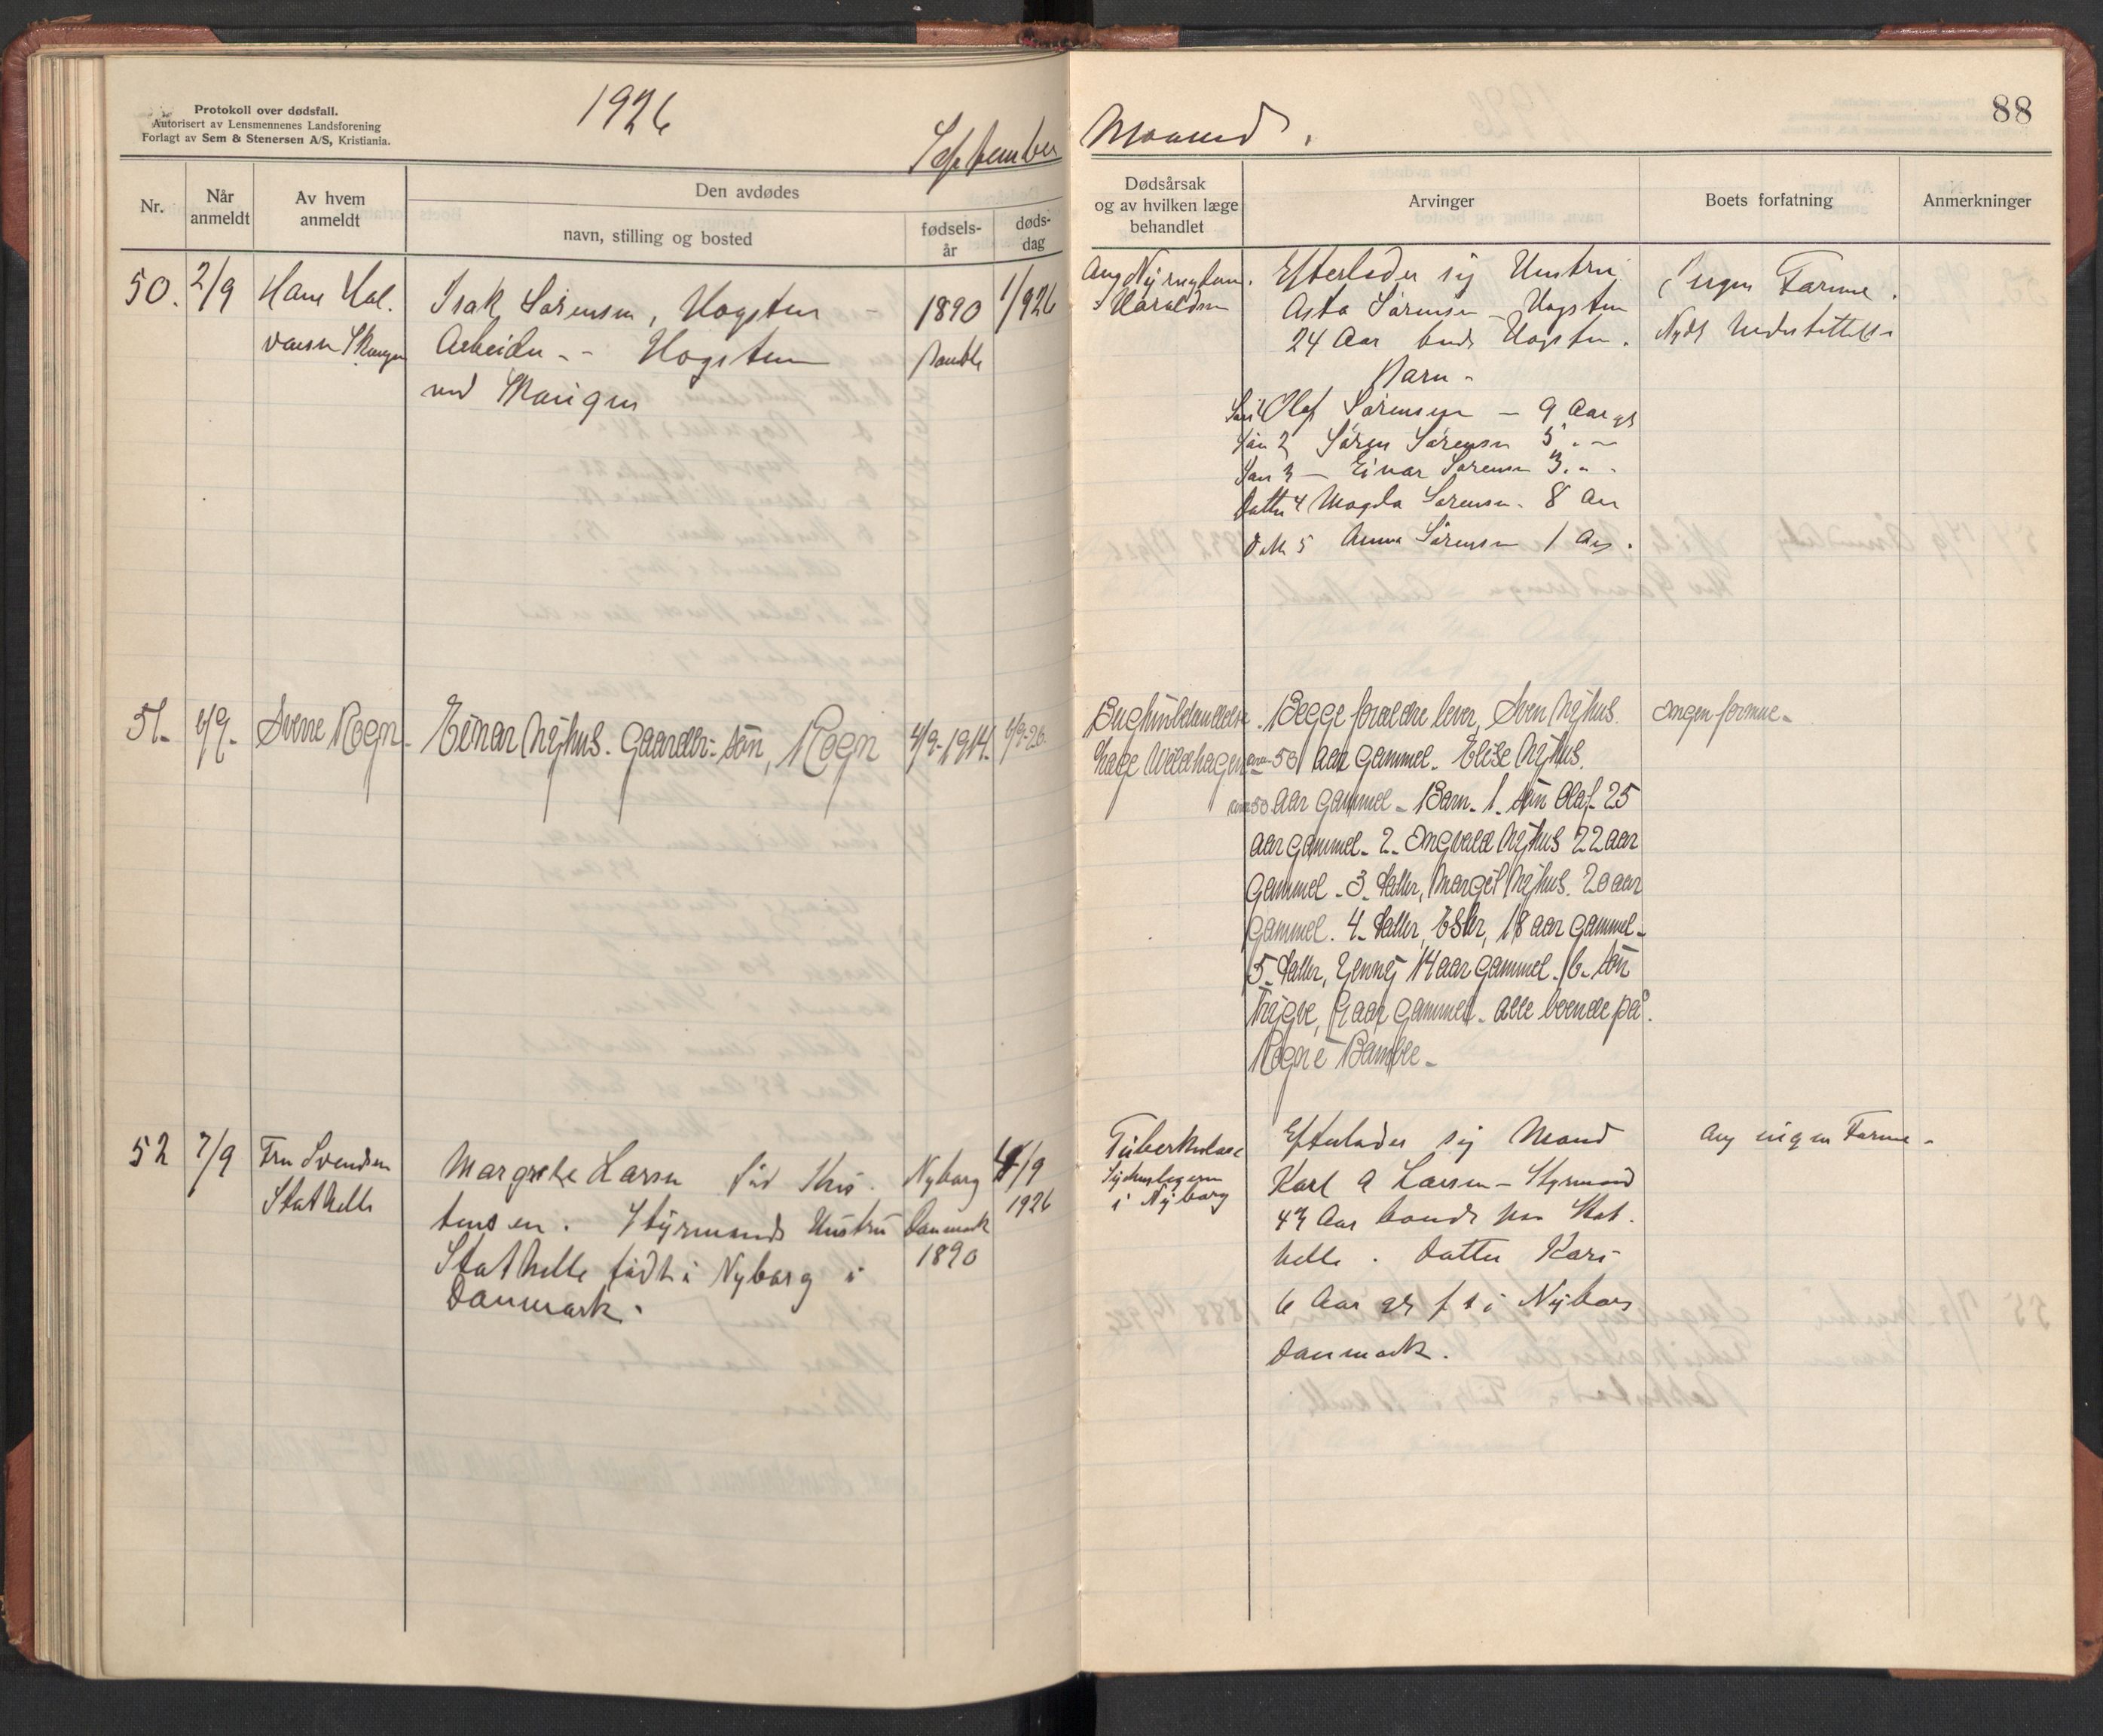 Protokoll over dødsfall.
Autorisert av Lensmennenes Landsforening
Forlagt av Sem & Stenersen A/S, Kristiania.
1926
September
Nr.
Når
anmeldt
Av hvem
anmeldt
Den avdødes
navn, stilling og bosted
fødsels-
år
døds-
dag
50.
2/9
Hans Hal.
vorsen
Isak Sørensen, Hogsten
Arbeider - - Hogsten
ved
1890
Bamble
1/926
51.
6/9.
Sverre Rogn.
Einar Nyhus. Gaardbr. søn, Rogn
4/9-1914.
6/9-26.
52
7/9
Fru Svendsen
Stathelle
Margrethe Larsen fød Kris.
tensen. Styrmands Hustru
Stathelle født i Nyborg i
Danmark.
Nyborg
Danmark
1890
4/9
1926
Maaned.
88
Dødsårsak
og av hvilken læge
behandlet
Arvinger
Boets forfatning
Anmerkninger
Haraldsen
Efterlader sig Hustru
Asta Sørensen - Hogsten
24 Aar boende Hogsten.
Barn -
Søn 1 Olaf Sørensen - 9 Aar gl
Søn 2 Søren Sørensen 5 . -
Søn 3 - Einar Sørensen 3. - .
Datter 4 Magda Sørensen. 8 Aar
Datt 5 Anna Sørensen 1 Aar.
Ingen Formue.
Nydt Understøttelse
Bughindebetændelse.
Læge Wildhagen
Begge forældre lever, Sven Nyhus.
aar gammel. Elise Nyhus.
50 aar gammel - Barn. 1. søn Olaf. 25
aar gammel. 2. Ingvald Nyhus 22 aar
gammel. 3. datter, Margit Nyhus. 20 aar
gammel. 4. datter, Ester, 18 aar gammel.
5. datter, Jenny 14 aar gammel. 6. søn
Trygve, 9 aar gammel. alle boende på.
Rogn i Bamble.
Ingen formue.
Tuberkulose
i Nyborg
Efterlader sig Mand
Karl A Larsen - Styrmand
43 Aar boende paa Stat.
helle. Datter Kari
6 Aar gl f t i Nyborg
Danmark.
ingen Formue.